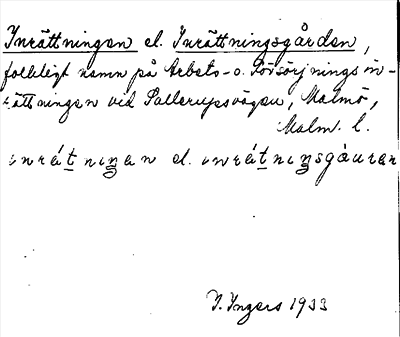 Inrättningen el. Inrättningsgården,
folkligt namn på Arbets- o. Försörjningsin-
rättningen vid Sallerupsvägen, Malmö,
Malm. l.
inrátnıŋan el. inrátnıŋsgåuran
I. Ingers 1933